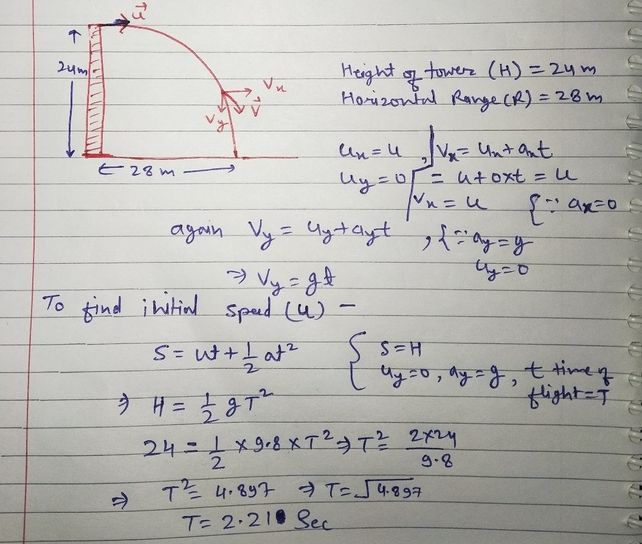 u⃗
24m
Vx
Vy
V⃗
← 28 m →
Height of tower (H) = 24 m
Horizontal Range (R) = 28 m
ux = u , Vx = ux + axt
uy = 0 = u + 0xt = u
Vx = u {∵ ax=0
again Vy = uy + ayt , {∵ ay = g
uy = 0
⇒ Vy = gt
To find initial speed (u) —
S = ut + 1/2 at² { S = H
uy=0, ay=g, t time of
flight = T
⇒ H = 1/2 g T²
24 = 1/2 × 9.8 × T² ⇒ T² = 2×24/9.8
⇒ T² = 4.897 ⇒ T = √4.897
T = 2.21 Sec